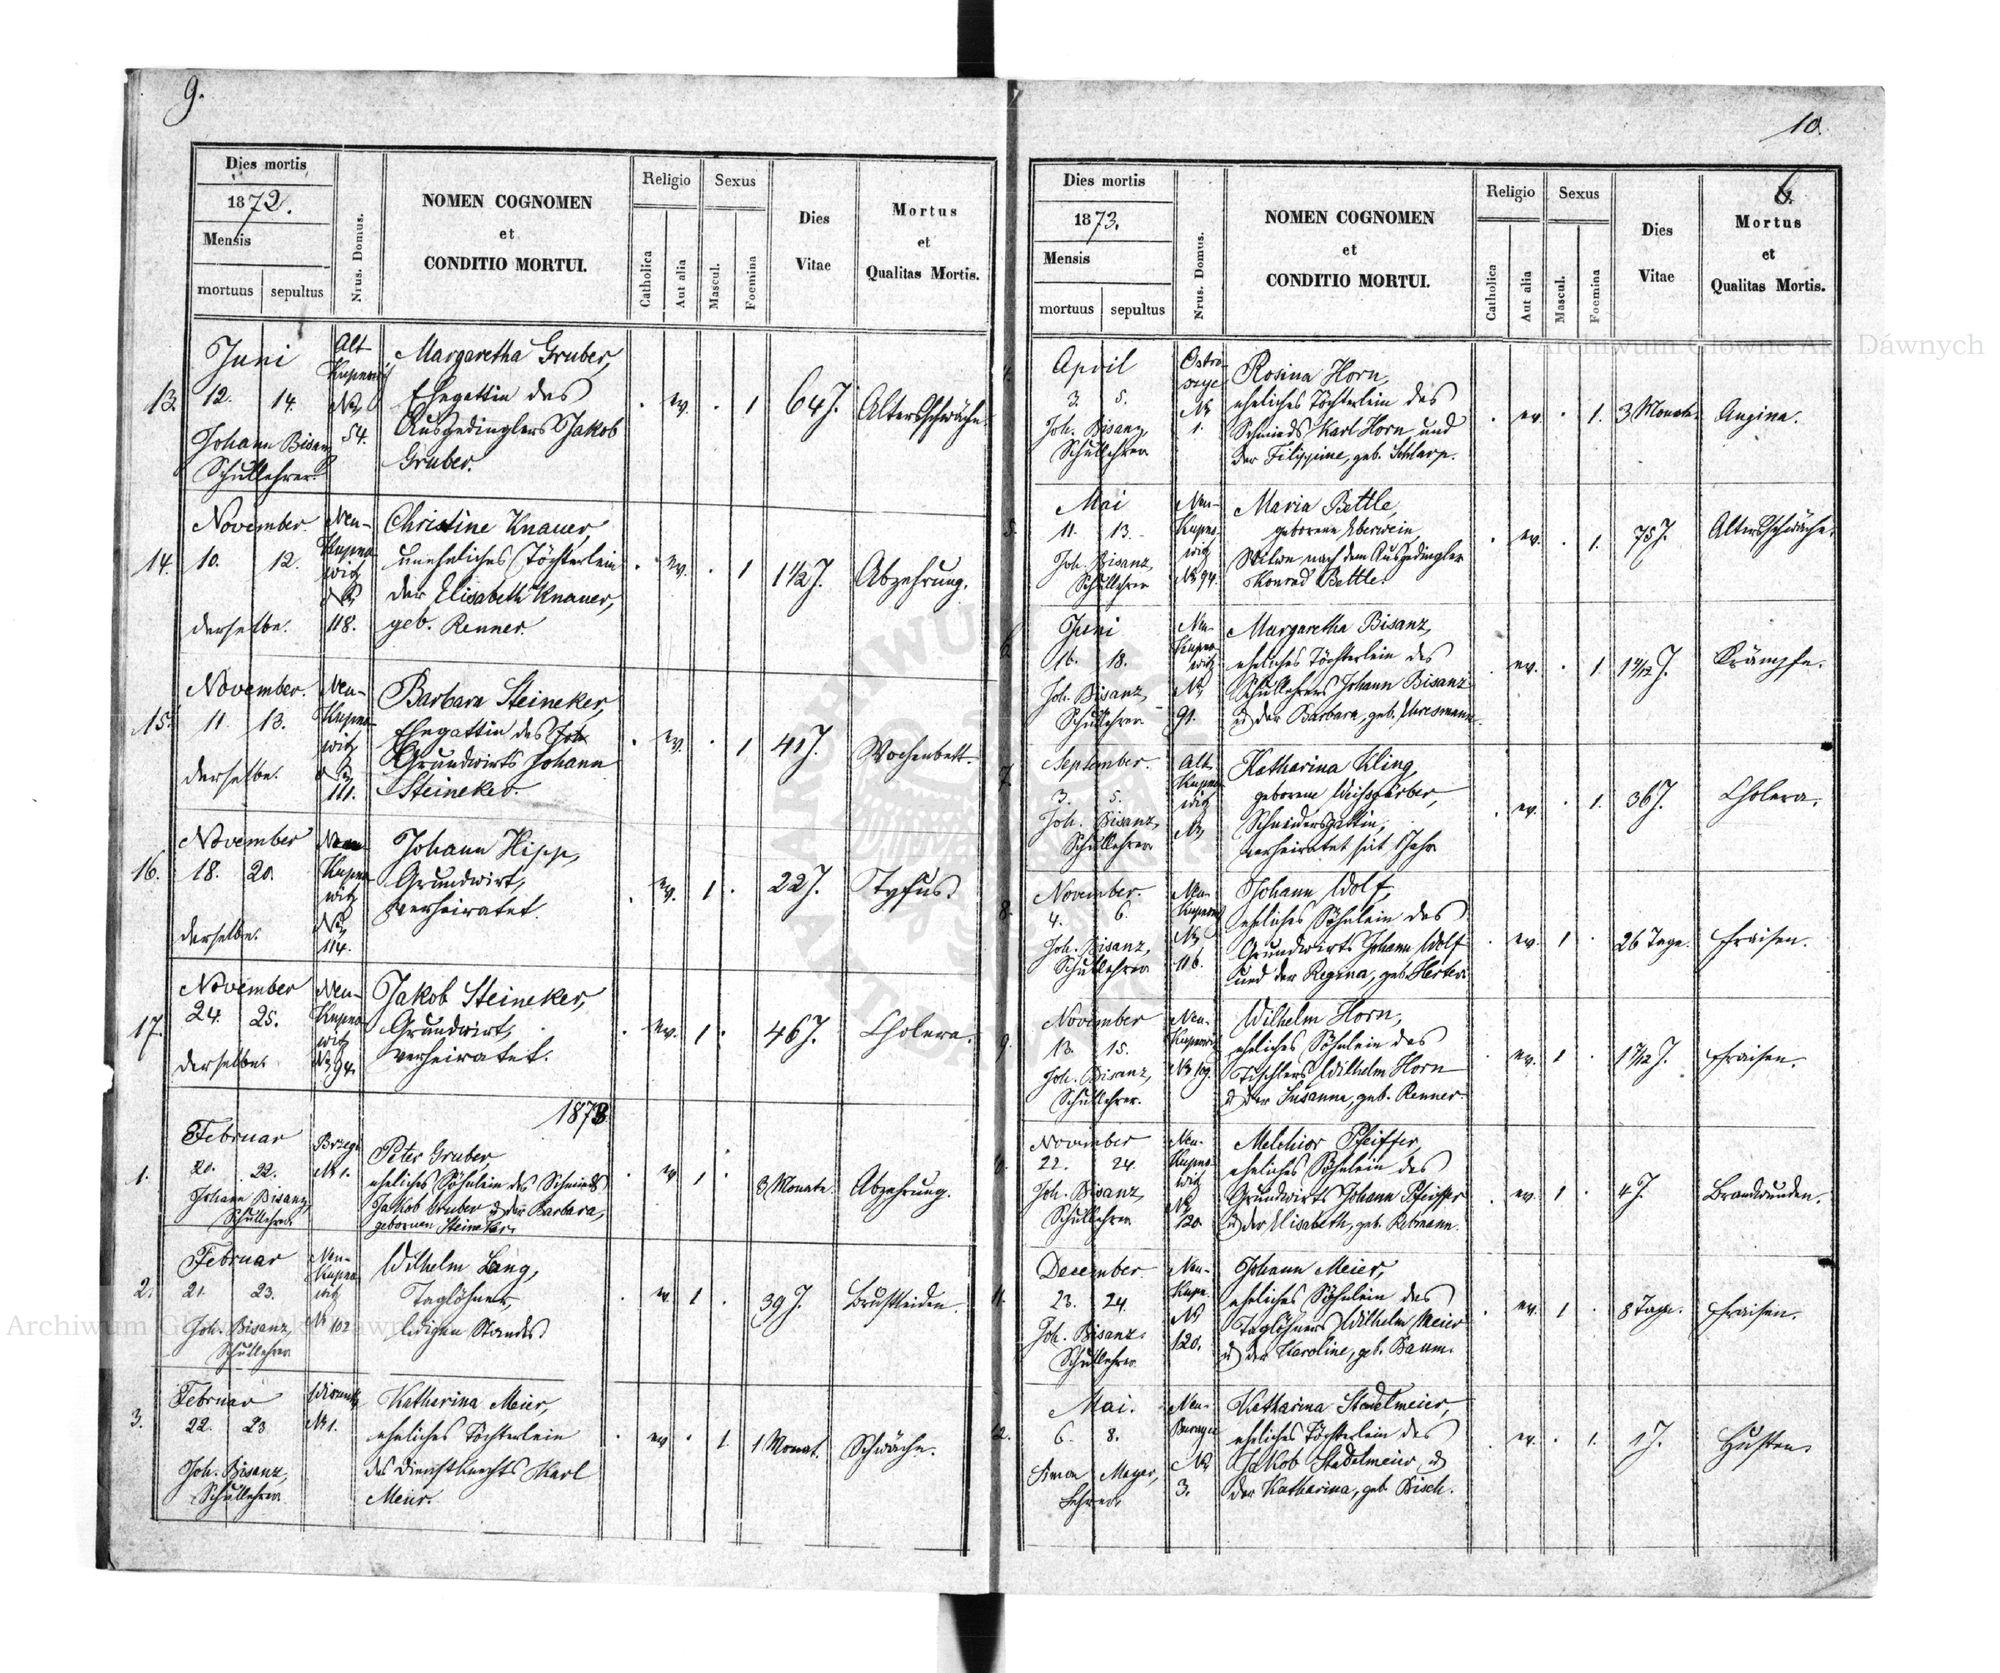 9.
Dies mortis
1872.
Mensis
mortuus
sepultus
Nrus. Domus.
NOMEN COGNOMEN
et
CONDITIO MORTUI.
Religio
Catholica
Aut alia
Sexus
Mascul.
Foemina
Dies
Vitae
Mortus
et
Qualitas Mortis.
13.
Juni
12. 14.
Johann Bisanz
Schullehrer.
Alt
Kupnowitz
No
54.
Margaretha Gruber,
Ehegattin des
Ausgedinglers Jakob
Gruber.
. ev. . 1
64 J.
Altersschwäche.
14.
November
10. 12.
derselbe.
Neu-
Kupno
witz
No
118.
Christine Knauer,
uneheliches Töchterlein
der Elisabeth Knauer,
geb. Renner.
. ev. . 1
1 1/2 J.
Abzehrung.
15.
November.
11. 13.
derselbe.
Neu-
Kupno
witz
No
111.
Barbara Steineker,
Ehegattin des Joh
Grundwirts Johann
Steineker.
. ev. . 1
41 J.
Wochenbett.
16.
November
18. 20.
derselbe.
Neu
Kupno
witz
No
114.
Johann Hipp,
Grundwirt,
verheiratet.
. ev. 1 .
22 J.
Tyfus
17.
November
24. 25.
derselbe.
Neu-
Kupno
witz
No 94.
Jakob Steineker,
Grundwirt,
verheiratet.
. ev. 1 .
46 J.
Cholera.
1873
1.
Februar
20. 22.
Johann Bisanz,
Schullehrer.
No 1.
Peter Gruber,
eheliches Söhnlein des Schmieds
Jakob Gruber u der Barbara,
gebornen Steineker.
. ev 1 .
3 Monate.
Abzehrung.
2.
Februar
21. 23.
Joh. Bisanz,
Schullehrer
Neu-
Kupno
witz
No 102
Wilhelm Lang,
Taglöhner,
ledigen Standes
. ev. 1 .
39 J.
Brustleiden.
3.
Februar
22. 23
Joh. Bisanz,
Schullehrer.
No 1.
Katharina Meier,
eheliches Töchterlein
des Dienstknechts Karl
Meier.
. ev . 1.
1 Monat.
Schwäche.
10.
6.
Dies mortis
1873.
Mensis
mortuus
sepultus
Nrus. Domus.
NOMEN COGNOMEN
et
CONDITIO MORTUI.
Religio
Catholica
Aut alia
Sexus
Mascul.
Foemina
Dies
Vitae
Mortus
et
Qualitas Mortis.
4.
April
3. 5.
Joh. Bisanz,
Schullehrer
No
1.
Rosina Horn,
eheliches Töchterlein des
Schmieds Karl Horn und
der Filippine, geb. Schlarp.
. ev . 1.
3 Monate.
Angina.
5.
Mai
11. 13.
Joh. Bisanz,
Schullehrer
Neu-
Kupno-
witz
No 94.
Maria Bettle,
geborene Eberwein,
Witwe nach dem Ausgedingler
Konrad Bettle.
. ev. . 1.
75 J.
Altersschwäche.
6.
Juni
16. 18.
Joh. Bisanz,
Schullehrer
Neu-
Kupno
witz
No
91.
Margaretha Bisanz,
eheliches Töchterlein des
Schullehrers Johann Bisanz
u der Barbara, geb. Ehresmann.
. ev. . 1
Krämpfe.
7.
September.
3. 5.
Joh. Bisanz,
Schullehrer
Alt
Kupno
witz
No
Katharina Kling,
geborene Weissgärber,
Schneidersgattin,
verheiratet seit 1 Jahr
. ev. . 1.
36 J.
Cholera.
8.
November.
4. 6.
Joh. Bisanz,
Schullehrer
Neu-
Kupnowitz
No
116.
Johann Wolf,
eheliches Söhnlein des
Grundwirts Johann Wolf
und der Regina, geb. Herter.
. ev. 1 .
26 Tage.
Fraisen.
9.
November
13. 15.
Joh. Bisanz,
Schullehrer.
Neu-
Kupnowitz
No 109.
Wilhelm Horn,
eheliches Söhnlein des
Tischlers Wilhelm Horn
u der Susanna, geb. Renner
. ev. 1 .
Fraisen.
10.
November
22. 24.
Joh. Bisanz,
Schullehrer
Neu-
Kupno-
witz
No
120
Melchior Pfeiffer,
eheliches Söhnlein des
Grundwirts Johann Pfeiffer
u der Elisabeth, geb. Rebmann.
. ev. 1 .
4 J.
Brandwunden.
11.
December
23. 24.
Joh. Bisanz.
Schullehrer
Neu-
Kupn.
No
120.
Johann Meier,
eheliches Söhnlein des
Taglöhners Wilhelm Meier
u der Karoline, geb. Baum.
. ev. 1 .
8 Tage.
Fraisen.
12.
Mai.
6. 8.
Simon Mayer,
Lehrer.
Neu-
No
3.
Katharina Stadelmeier,
eheliches Töchterlein des
Jakob Stadelmeier u
der Katharina, geb. Bisch.
. ev. . 1.
1 J.
Husten.
Archiwum Główne Akt Dawnych